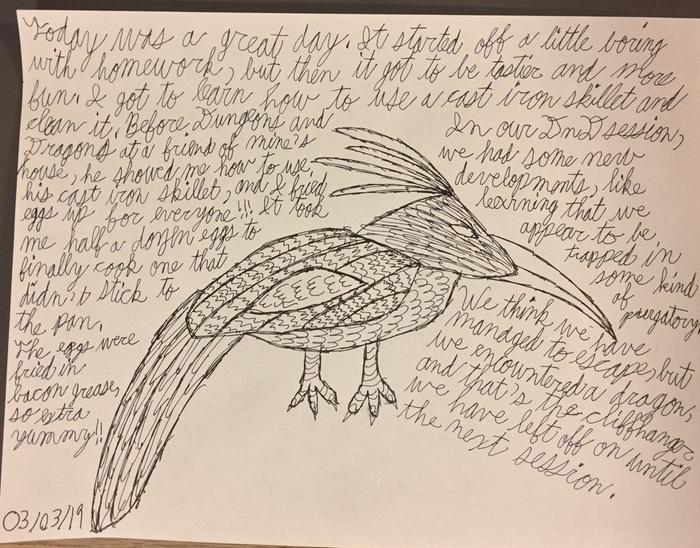 Today was a great day. It started off a little boring
with homework, but then it got to be tastier and more
fun. I got to learn how to use a cast iron skillet and
clean it. Before Dungeons and
Dragons at a friend of mine's
house, he showed me how to use
his cast iron skillet, and I fried
eggs up for everyone!!! It took
me half a dozen eggs to
finally cook one that
didn't stick to
the pan.
The eggs were
fried in
bacon grease,
so extra
yummy!!
In our DnD session,
we had some new
developments, like
learning that we
appear to be
trapped in
some kind
of
purgatory.
We think we have
managed to escape, but
we encountered a dragon,
and that's the cliffhanger
we have left off on until
the next session.
03/03/19